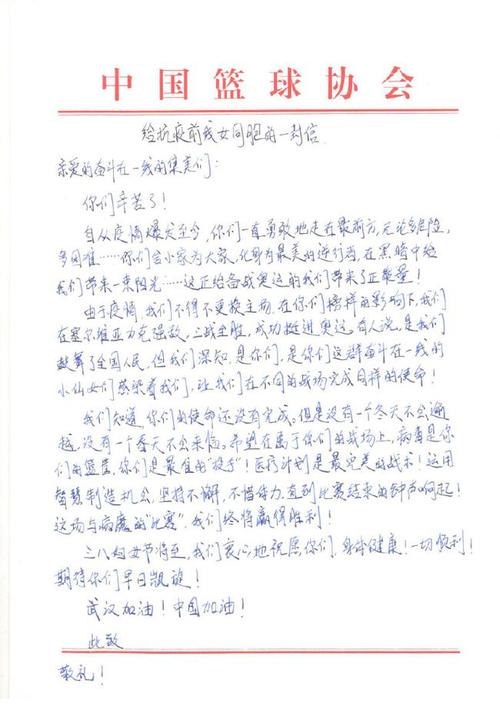 中国篮球协会
给抗疫前线女同胞的一封信
亲爱的奋斗在一线的集美们：
你们辛苦了！
自从疫情爆发至今，你们一直勇敢地走在最前方，无论多危险，
多困难……你们舍小家为大家，化身为最美的逆行者，在黑暗中给
我们带来一束阳光……这正给备战奥运的我们带来了正能量！
由于疫情，我们不得不更换主场，在你们榜样的影响下，我们
在塞尔维亚力克强敌，三战全胜，成功挺进奥运。有人说，是我们
鼓舞了全国人民，但我们深知，是你们，是你们这群奋斗在一线的
小仙女们感染着我们，让我们在不同的战场完成同样的使命！
我们知道，你们的使命还没有完成。但是没有一个冬天不会逾
越，没有一个春天不会来临。希望在属于你们的战场上，病毒是你
们的篮筐，你们是最佳的“投手”！医疗计划是最完美的战术！运用
智慧制造机会，坚持不懈，不惜体力，直到比赛结束的钟声响起！
这场与病魔的“比赛”，我们终将赢得胜利！
三八妇女节将至，我们衷心地祝愿你们，身体健康！一切顺利！
期待你们早日凯旋！
武汉加油！中国加油！
此致
敬礼！